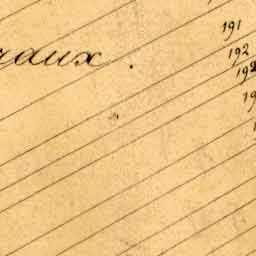 raux.
191
192
192
19
1